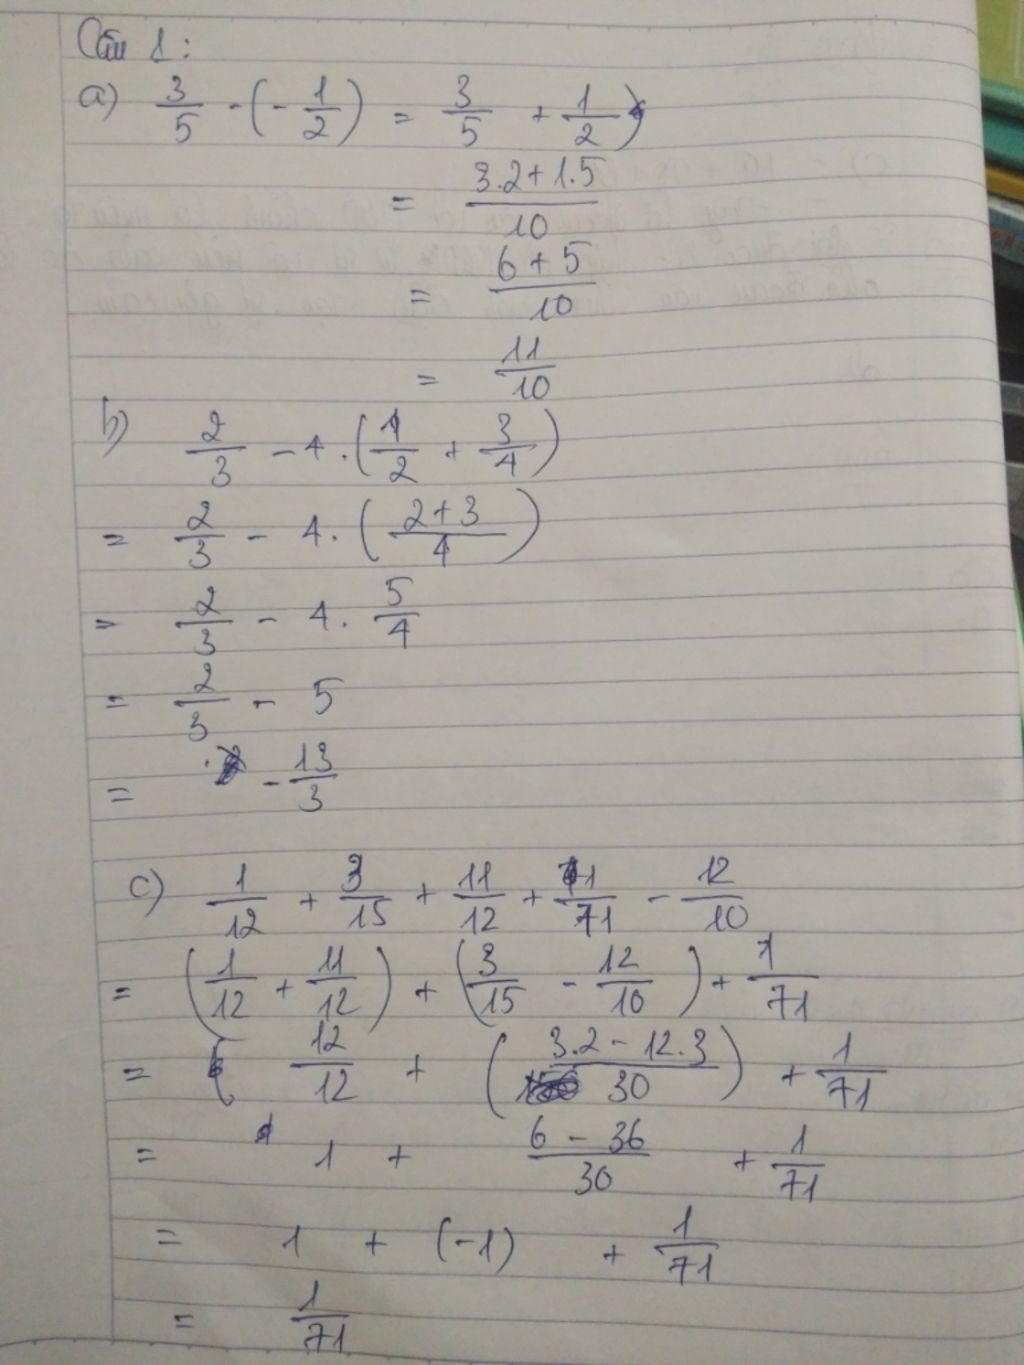 Câu 1:
a) 3/5 - (-1/2) = 3/5 + 1/2
= (3.2+1.5)/10
= (6+5)/10
= 11/10
b) 2/3 - 4.(1/2 + 3/4)
= 2/3 - 4.((2+3)/4)
= 2/3 - 4. 5/4
= 2/3 - 5
= -13/3
c) 1/12 + 3/15 + 11/12 + 1/71 - 12/10
= (1/12 + 11/12) + (3/15 - 12/10) + 1/71
= 12/12 + ((3.2 - 12.3)/30) + 1/71
= 1 + (6 - 36)/30 + 1/71
= 1 + (-1) + 1/71
= 1/71